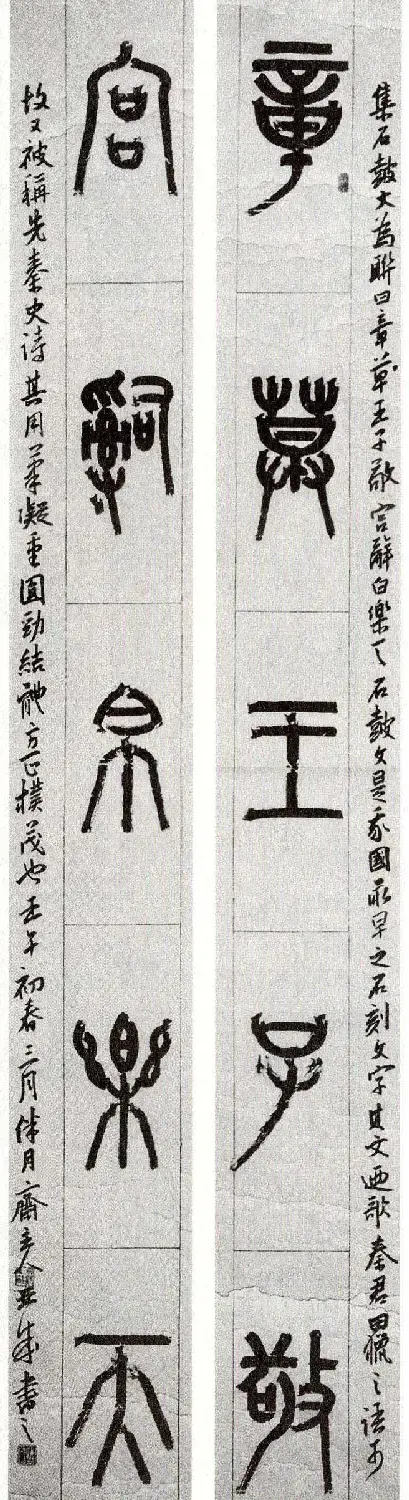 集石鼓文為聯曰章草王子敬宫辭白樂天石鼓文是我國最早之石刻文字其文迺歌秦君田獵之語可
章草王子敬
宫辭白樂天
故又被稱先秦史詩其用筆凝重圓勁結體方正樸茂也壬午初春三月伴月齋主人